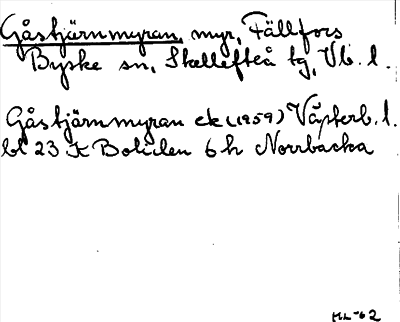 Gåstjärnmyran, myr, Fällfors
Byske sn, Skellefteå tg, Vb. l.
Gåstjärnmyran ek (1959) Västerb. l.
bl 23 K Boliden 6 h Norrbacka
ML-62